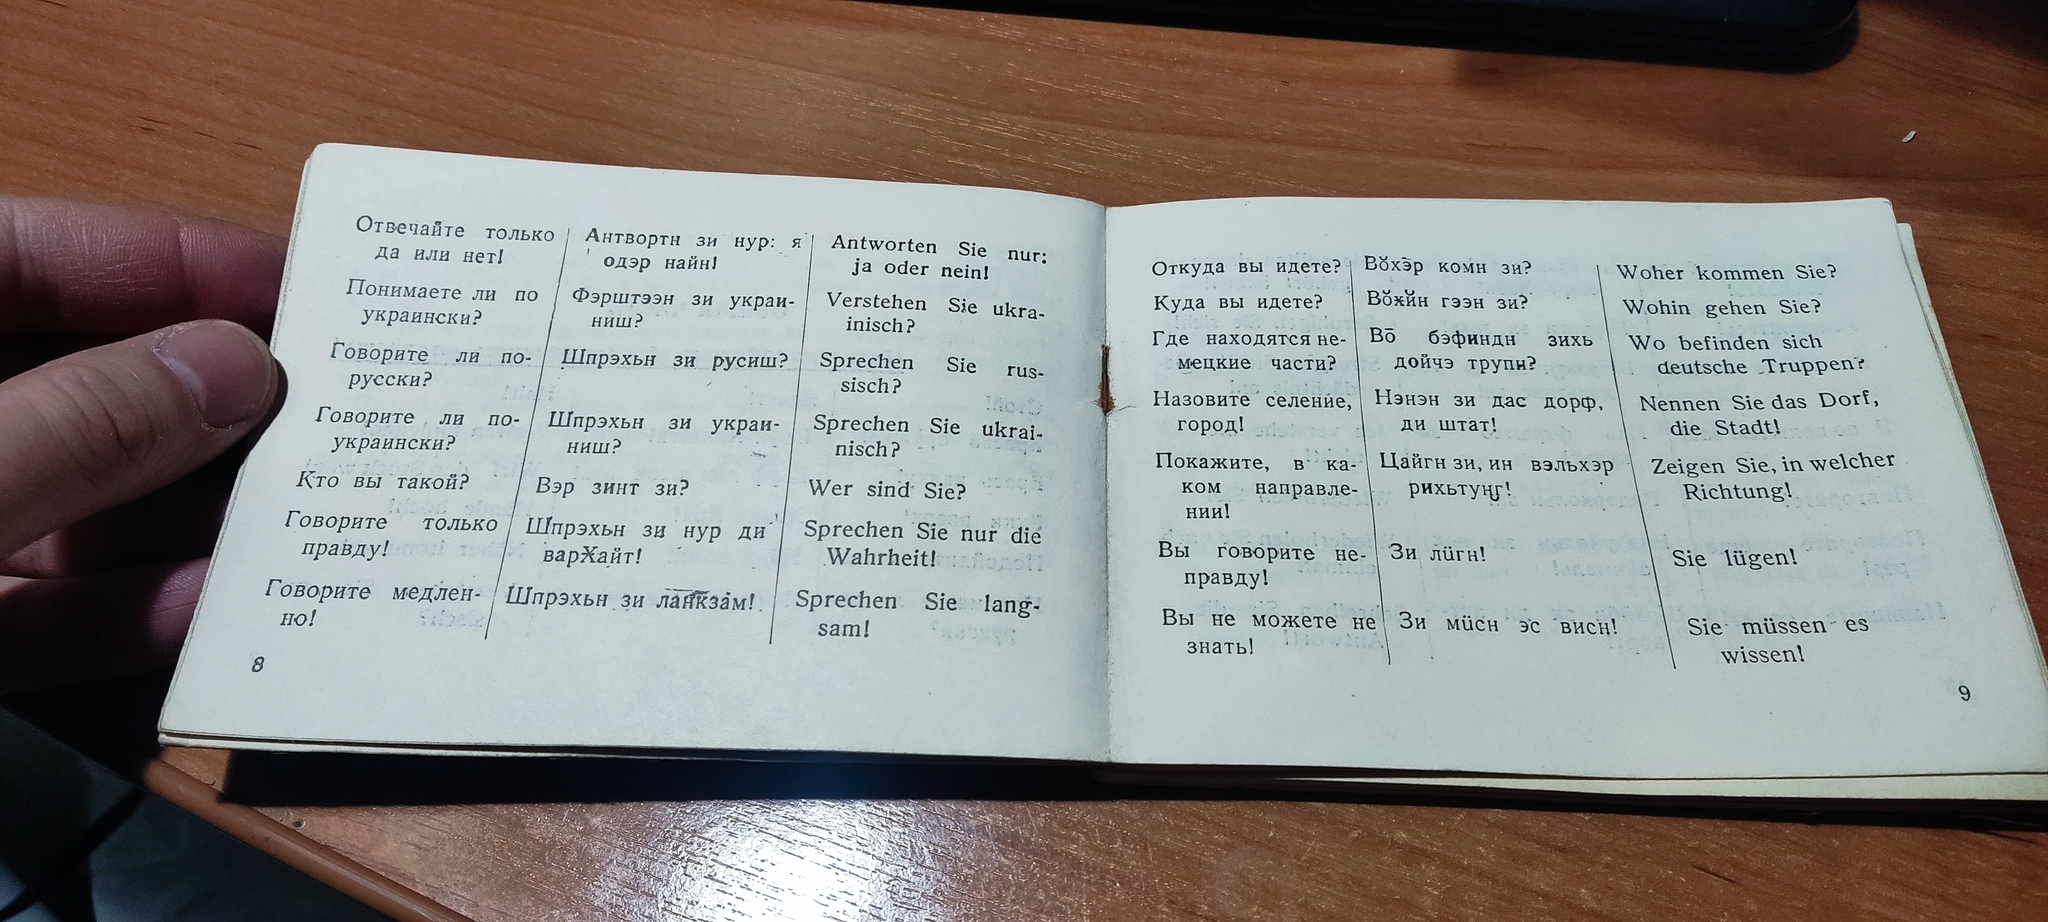 Отвечайте только
да или нет!
Антвортн зи нур: я
одэр найн!
Antworten Sie nur:
ja oder nein!
Понимаете ли по
украински?
Фэрштээн зи украи-
ниш?
Verstehen Sie ukra-
inisch?
Говорите ли по-
русски?
Шпрэхьн зи русиш?
Sprechen Sie rus-
sisch?
Говорите ли по-
украински?
Шпрэхьн зи украи-
ниш?
Sprechen Sie ukrai-
nisch?
Кто вы такой?
Вэр зинт зи?
Wer sind Sie?
Говорите только
правду!
Шпрэхьн зи нур ди
варХайт!
Sprechen Sie nur die
Wahrheit!
Говорите медлен-
но!
Шпрэхьн зи лангзам!
Sprechen Sie lang-
sam!
8
Откуда вы идете?
Во̆хэ̄р комн зи?
Woher kommen Sie?
Куда вы идете?
Во̆хйн гээн зи?
Wohin gehen Sie?
Где находятся не-
мецкие части?
Во̄ бэфиндн зихь
дойчэ трупн?
Wo befinden sich
deutsche Truppen?
Назовите селение,
город!
Нэнэн зи дас дорф,
ди штат!
Nennen Sie das Dorf,
die Stadt!
Покажите, в ка-
ком направле-
нии!
Цайгн зи, ин вэльхэр
рихьтунг!
Zeigen Sie, in welcher
Richtung!
Вы говорите не-
правду!
Зи лüгн!
Sie lügen!
Вы не можете не
знать!
Зи мüсн эс висн!
Sie müssen es
wissen!
9